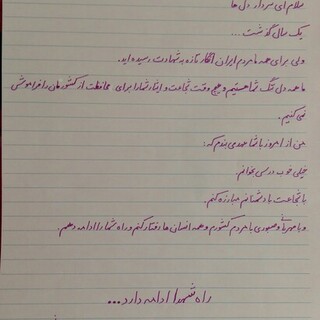 سلام ای سردار دل ها
یک سال گذشت ...
ولی برای همه ما مردم ایران انگار تازه به شهادت رسیده اید.
ما همه دل تنگ شما هستیم و هیچ وقت شجاعت و ایثار شما را برای محافظت از کشورمان را فراموش
نمی کنیم.
من از امروز با شما عهدی بندم که:
خیلی خوب درس بخوانم.
با شجاعت با دشمنانم مبارزه کنم.
و با مهربانی و صبوری با مردم کشورم و همه انسان ها رفتار کنم و راه شما را ادامه دهم.
راه شهدا ادامه دارد...